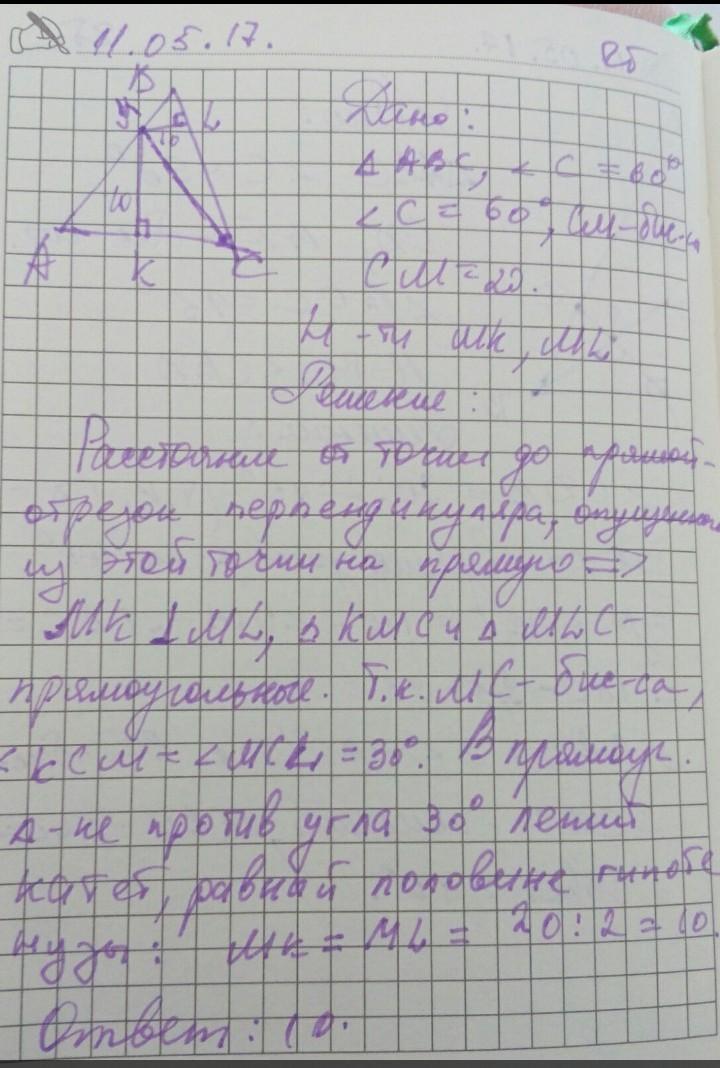 11.05.17.
РБ
B
M
L
10
10
A
K
C
Дано:
△ ABC, < C = 60°
< C = 60°, CM - бис-са
CM = 20.
Н-ти MK, ML
Решение:
Расстояние от точки до прямой-
отрезок перпендикуляра, опущенного
из этой точки на прямую =>
MK ⊥ ML, △ KMC и △ MLC -
прямоугольные. Т.к. MC - бис-са,
< KCM = < MCL = 30°. В прямоуг.
△-ке против угла 30° лежит
катет, равный половине гипоте
нузы: MK = ML = 20:2 = 10.
Ответ: 10.